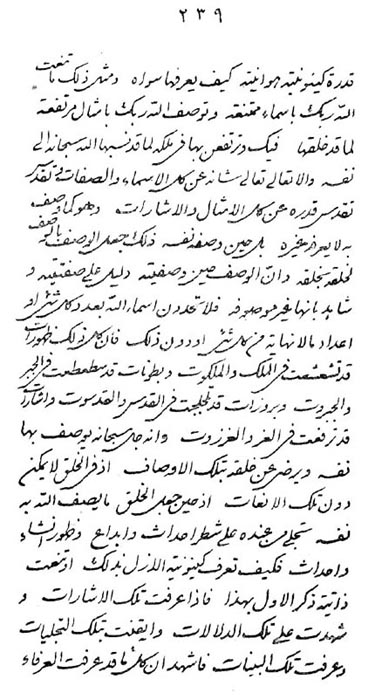 ٢٣٩
قدرة كينونيته هو انيته كيف يعرفها سواه ومثل ذلك ما تنعت
الله ربك باسماء ممتنعة وتوصف الله ربك بامثال مرتفعة
لما قد خلقها فيك وترتفعن بها فى ملكه لما قد نسبها الله سبحانه الى
نفسه والا تعالى تعالى شانه عن كل الاسماء والصفات وتقدس
تقدس قدره عن كل الامثال والاشارات وهو كما وصف
به لا يعرفه غيره بل حين وصفه نفسه ذلك جعل الوصف
لخلقه بخلقه وان الوصف حين وصفيته دليل على صفتيته و
شاهد بانها غير موصوفه فلا تحددن اسماء الله بعدد كل شئ او
اعداد مالا نهاية من كل شئ او دون ذلك فان كل ذلك ظهورات
قد تشعشعت فى الملك والملكوت وبطونات قد تطمطعت فى الجبر
والجبروت وبروزات قد تجلجت فى القدس والقدسوت واشارات
قد ترفعت فى العز والعززوت وانه جل سبحانه يوصف بها
نفسه ويرضى عن خلقه بتلك الاوصاف اذ فى الخلق لا يمكن
دون تلك الانعات اذ حين جعل الخلق ما يصف الله به
نفسه تتجلى من عنده على شطر احداث وابداع وظهور انشاء
واحداث فكيف تعرف كينونية الازل بذلك او تنعت
ذاتية ذكر الاول بهذا فاذا عرفت تلك الاشارات و
شهدت على تلك الدلالات وايقنت بتلك التجليات
وعرفت تلك البينات فاشهد ان كل ما قد عرفت العرفاء